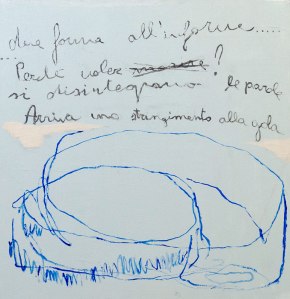 dare forma all'informe.....
...Perché voler ?
si disintegrano le parole
Arriva uno strangimento alla gola